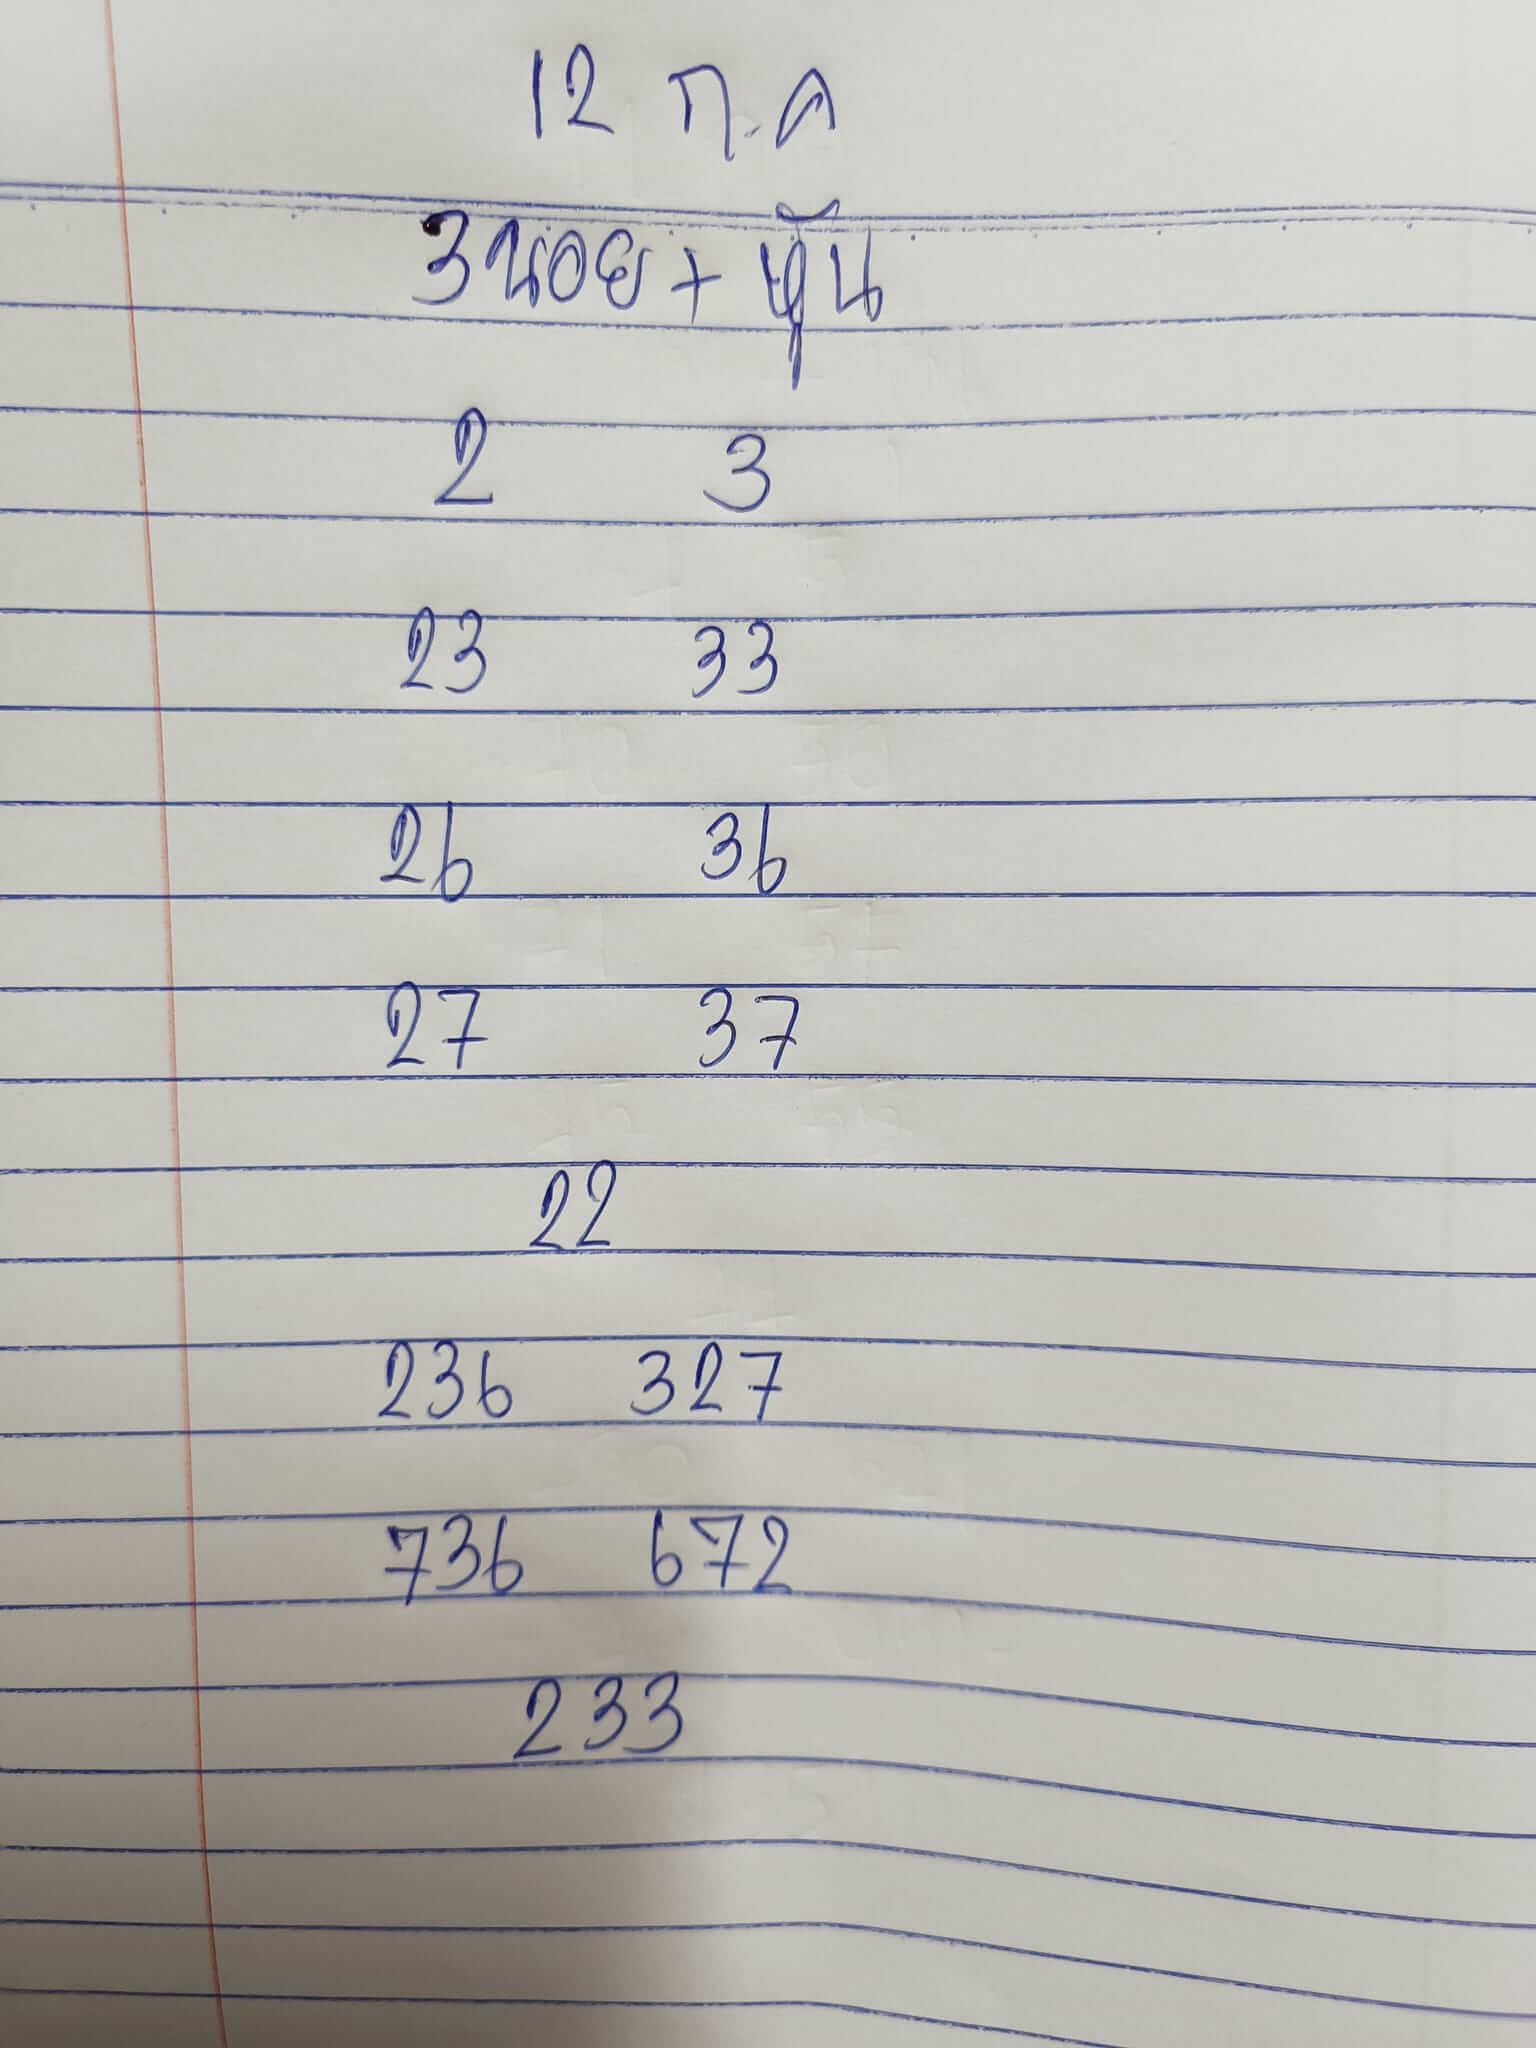 12 ก.ค
3นอย + หุ้น
2 3
23 33
26 36
27 37
22
236 327
736 672
233